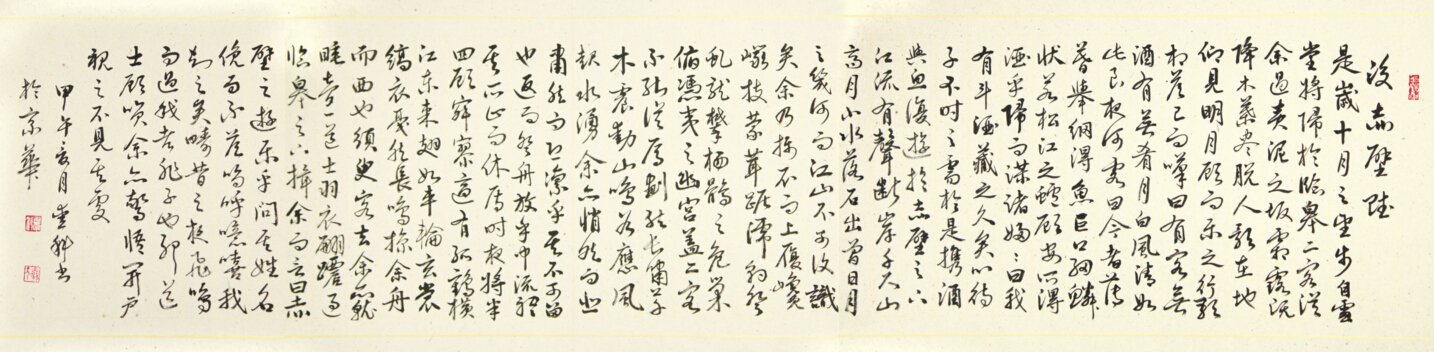 後赤壁賦
是歲十月之望步自雪
堂將歸於臨皋二客從
余過黃泥之坂霜露既
降木葉盡脫人影在地
仰見明月顧而樂之行歌
相答已而嘆曰有客無
酒有酒無肴月白風清如
此良夜何客曰今者薄
暮舉網得魚巨口細鱗
狀若松江之鱸顧安所得
酒乎歸而謀諸婦婦曰我
有斗酒藏之久矣以待
子不時之需於是攜酒
與魚復遊於赤壁之下
江流有聲斷岸千尺山
高月小水落石出曾日月
之幾何而江山不可復識
矣余乃攝衣而上履巉
巖披蒙茸踞虎豹登
虬龍攀栖鶻之危巢
俯馮夷之幽宮蓋二客
不能從焉劃然長嘯草
木震動山鳴谷應風
起水湧余亦悄然而悲
肅然而恐凜乎其不可留
也返而登舟放乎中流聽
其所止而休焉時夜將半
四顧寂寥適有孤鶴橫
江東來翅如車輪玄裳
縞衣戛然長鳴掠余舟
而西也須臾客去余亦就
睡夢一道士羽衣翩躚過
臨皋之下揖余而言曰赤
壁之遊樂乎問其姓名
俛而不答嗚呼噫嘻我
知之矣疇昔之夜飛鳴
而過我者非子也耶道
士顧笑余亦驚悟開戶
視之不見其處
甲午
於京華